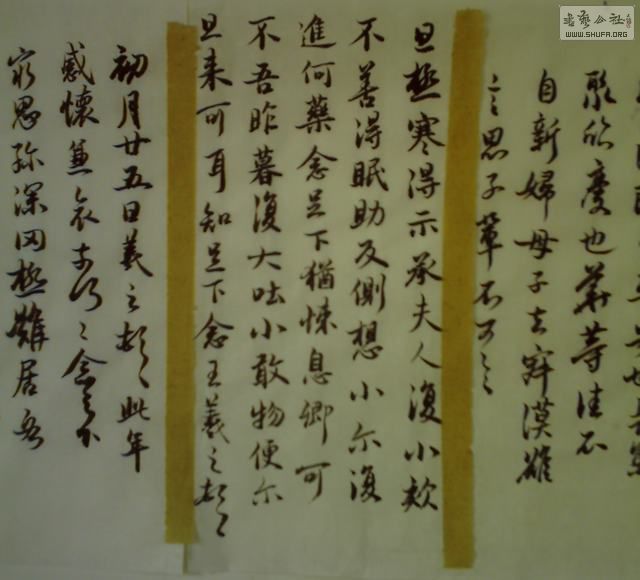 聚欣慶也華等佳不
自新婦母子去寂漠雖
言思子輩不可言〻
旦極寒得示承夫人復小欬
不善得眠助反側想小尔復
進何藥念足下猶悚息卿可
不吾昨暮復大吐小敢物便尔
旦来可耳知足下念王羲之頓〻
初月廿五日羲之頓〻此年
感懷兼哀
窮思弥深罔極難居吾
书艺公社
WWW.SHUFA.ORG